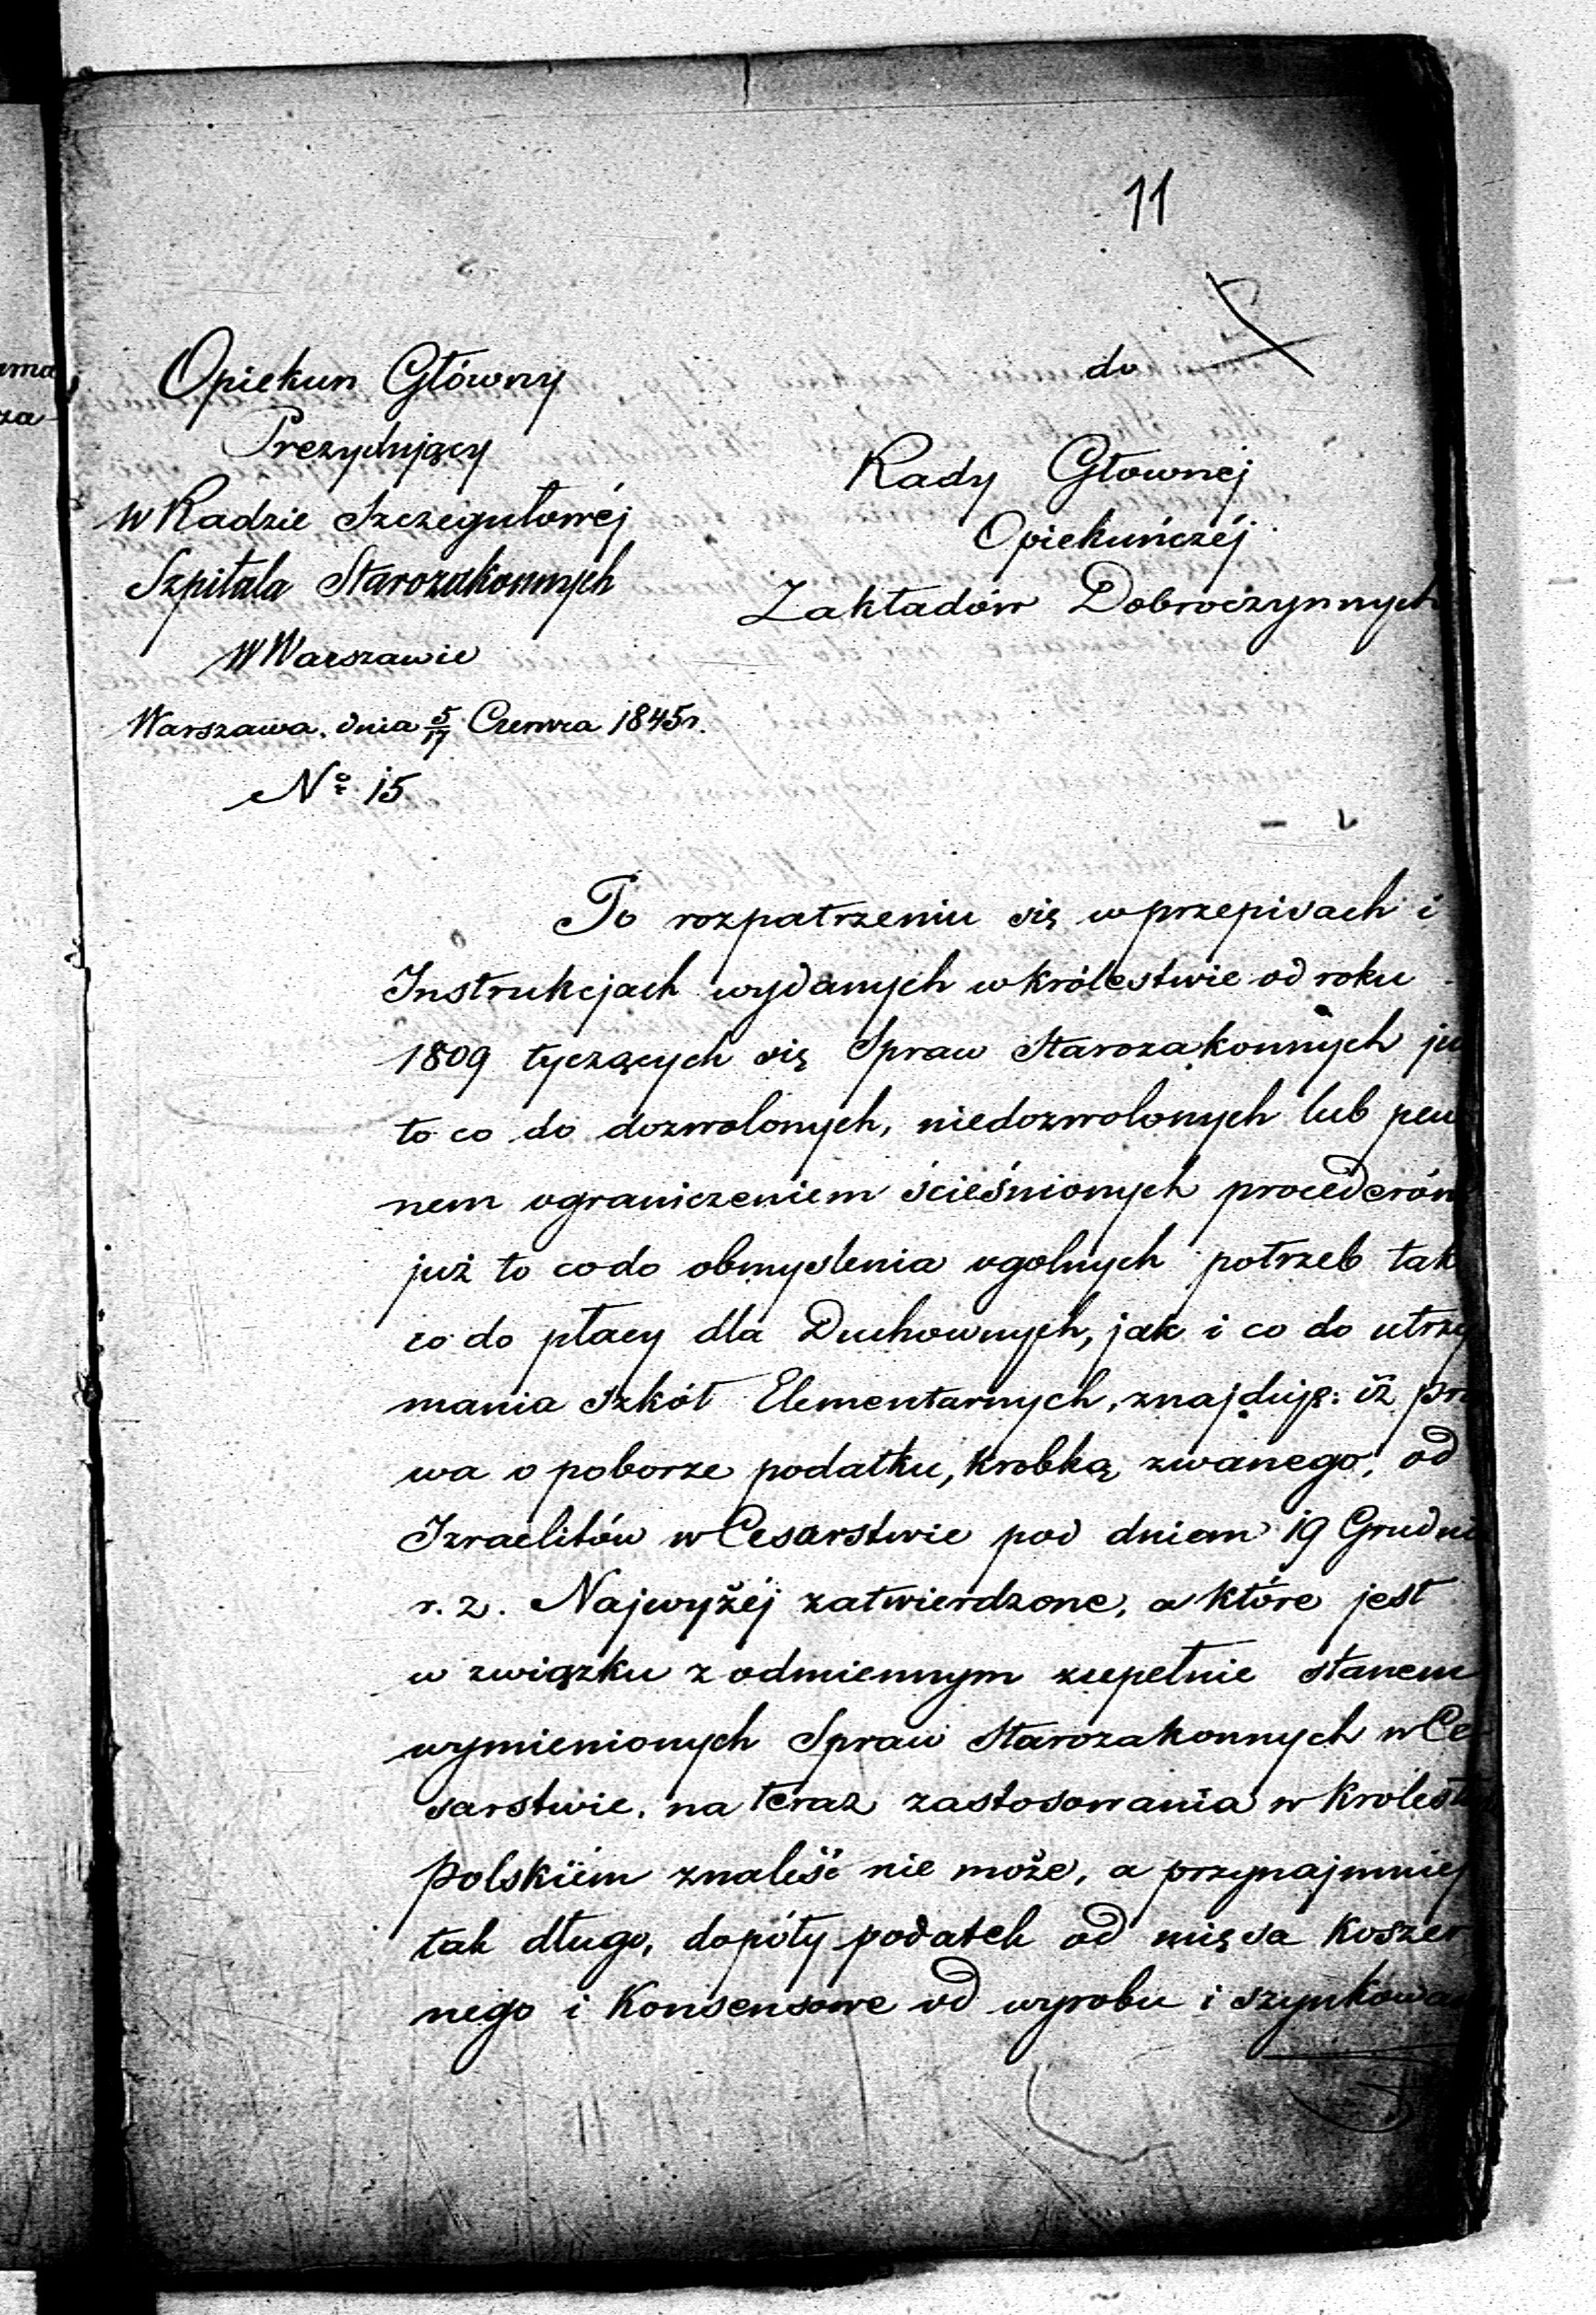 11
Opiekun Główny
Prezydujący
w Radzie Szczegułowéj
Szpitala Starozakonnych
w Warszawie
Warszawa. dnia 5/17 Czerwca 1845 r.
No 15
do
Rady Głownéj
Opiekuńczéj
Zakładów Dobroczynnych
Po rozpatrzeniu się w przepisach i
Instrukcjach wydanych w Królestwie od roku
1809 tyczących się Spraw Starozakonnych ju
to co do dozwolonych, niedozwolonych lub pew
nem ograniczeniem ścieśnionych procederów
już to co do obmyslenia ogolnych potrzeb tak
co do płacy dla Duchownych, jak i co do utrzy
mania Szkół Elementarnych, znajduję: iż pra
wa o poborze podatku, Krobką zwanego, od
Izraelitów w Cesarstwie pod dniem 19 Grudni
r. z. Najwyżéj zatwierdzone, a które jest
w związku z odmiennym zupełnie stanem
wymienionych Spraw Starozakonnych w Ce-
sarstwie, na teraz zastosowania w Królest
Polskiém znaleść nie może, a przynajmniej
tak długo, dopóty podatek od mięsa Koszer
nego i Konsensowe od wyrobu i szynkowa